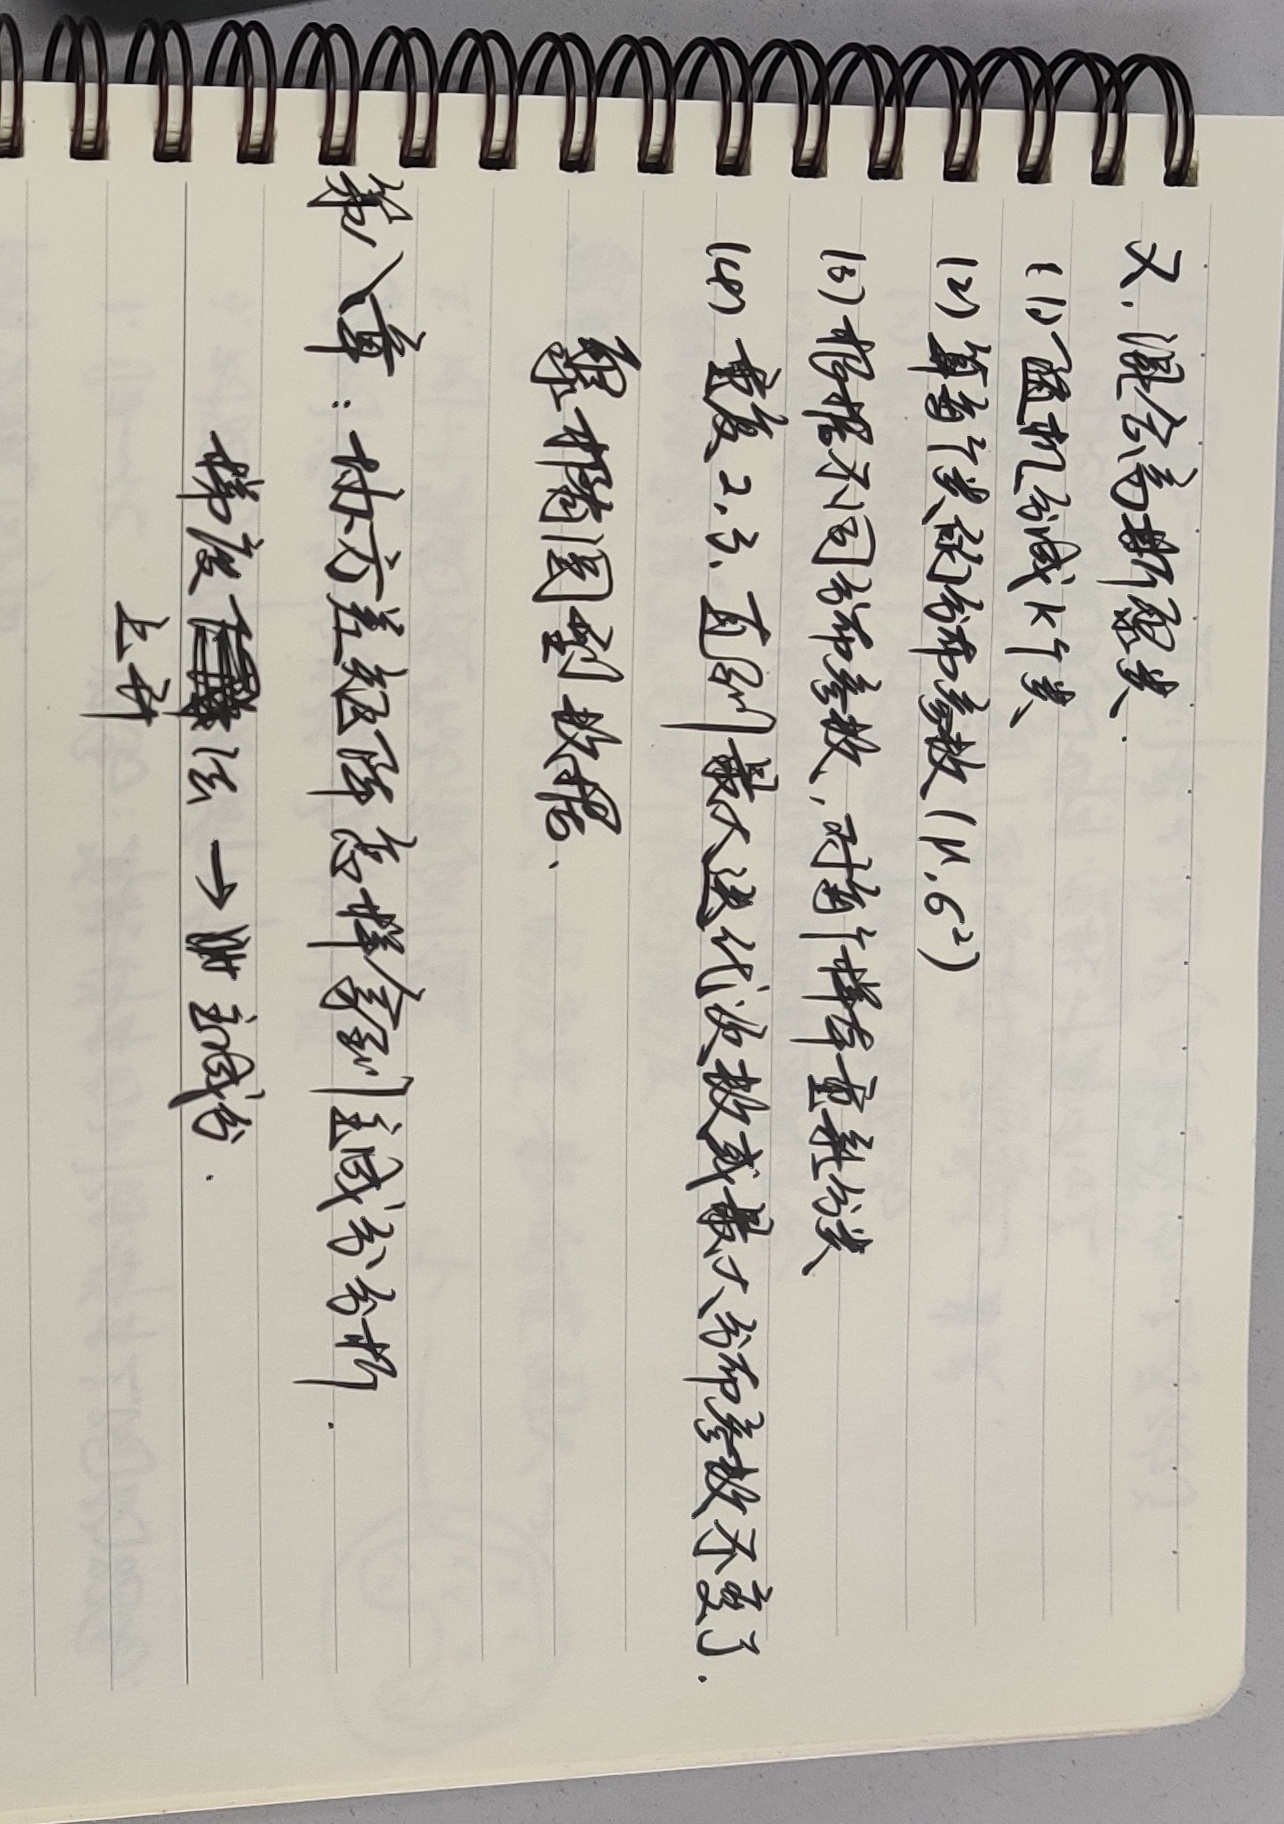 又, 混合高斯聚类.
(1) 随机分成K个类
(2) 算每个类的分布参数(μ, σ²)
(3) 根据不同分布参数, 对每个样本重新分类
(4) 重复2, 3、直到最大迭代次数或最大分布参数不变了.
聚椭圆型数据.
第八章: 协方差矩阵怎样拿到主成分分析.
梯度法 → 主成分.
上升